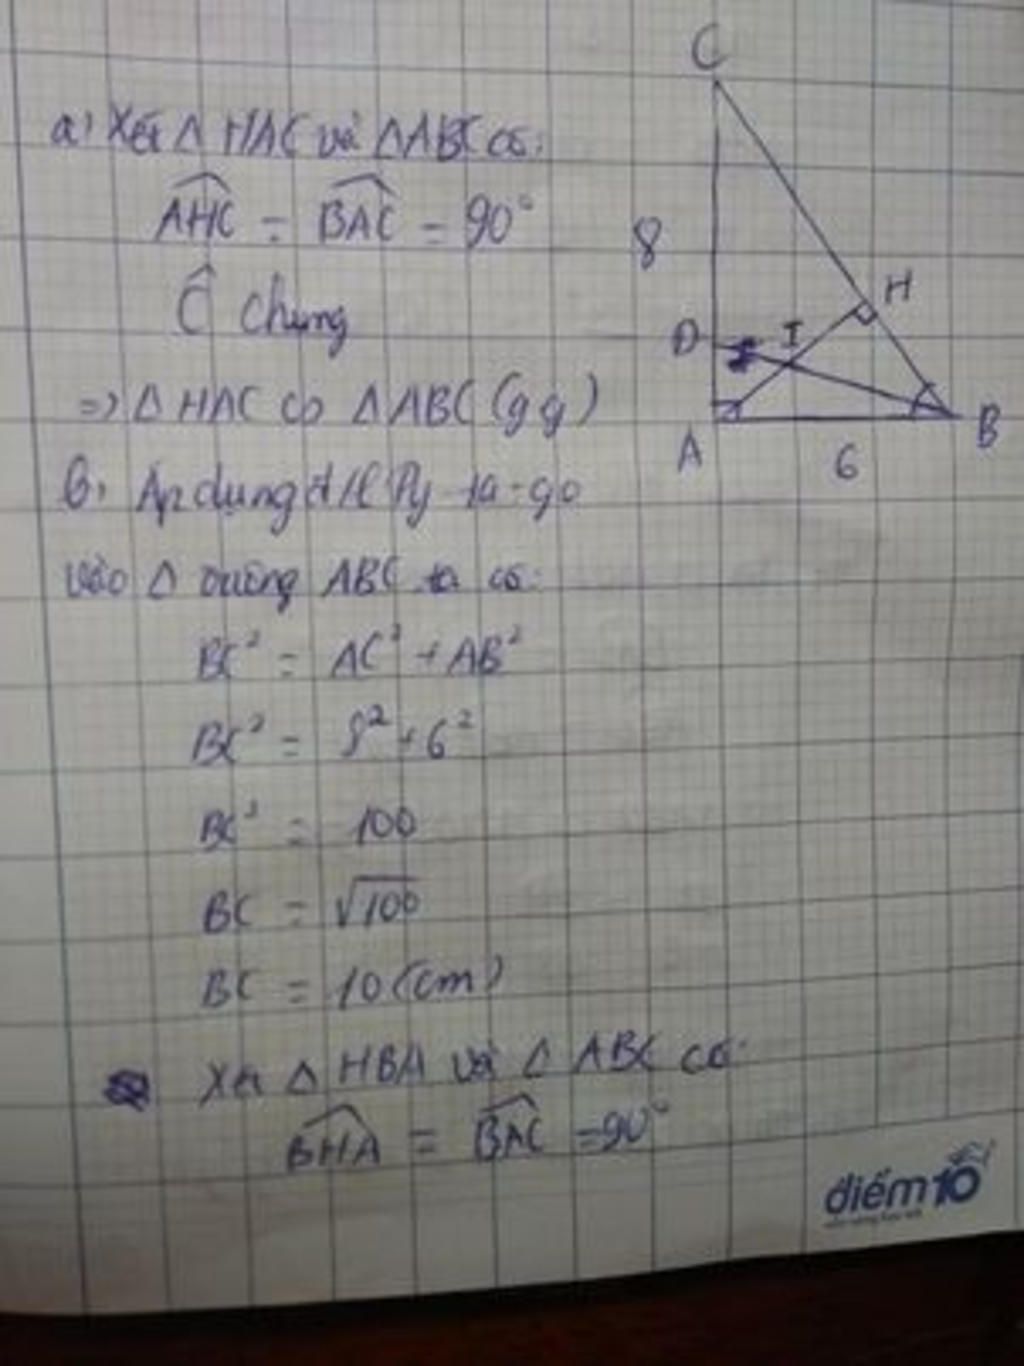 a) Xét Δ HAC và ΔABC có:
AHC = BAC = 90°
Ĉ chung
=> Δ HAC ∽ ΔABC (gg)
b, Áp dụng đ/l Py-ta-go
vào Δ vuông ABC ta có:
BC² = AC² + AB²
BC² = 8² + 6²
BC² = 100
BC = √100
BC = 10 (cm)
Xét Δ HBA và Δ ABC có:
BHA = BAC = 90°
C
8
H
D
I
A
B
6
điểm10